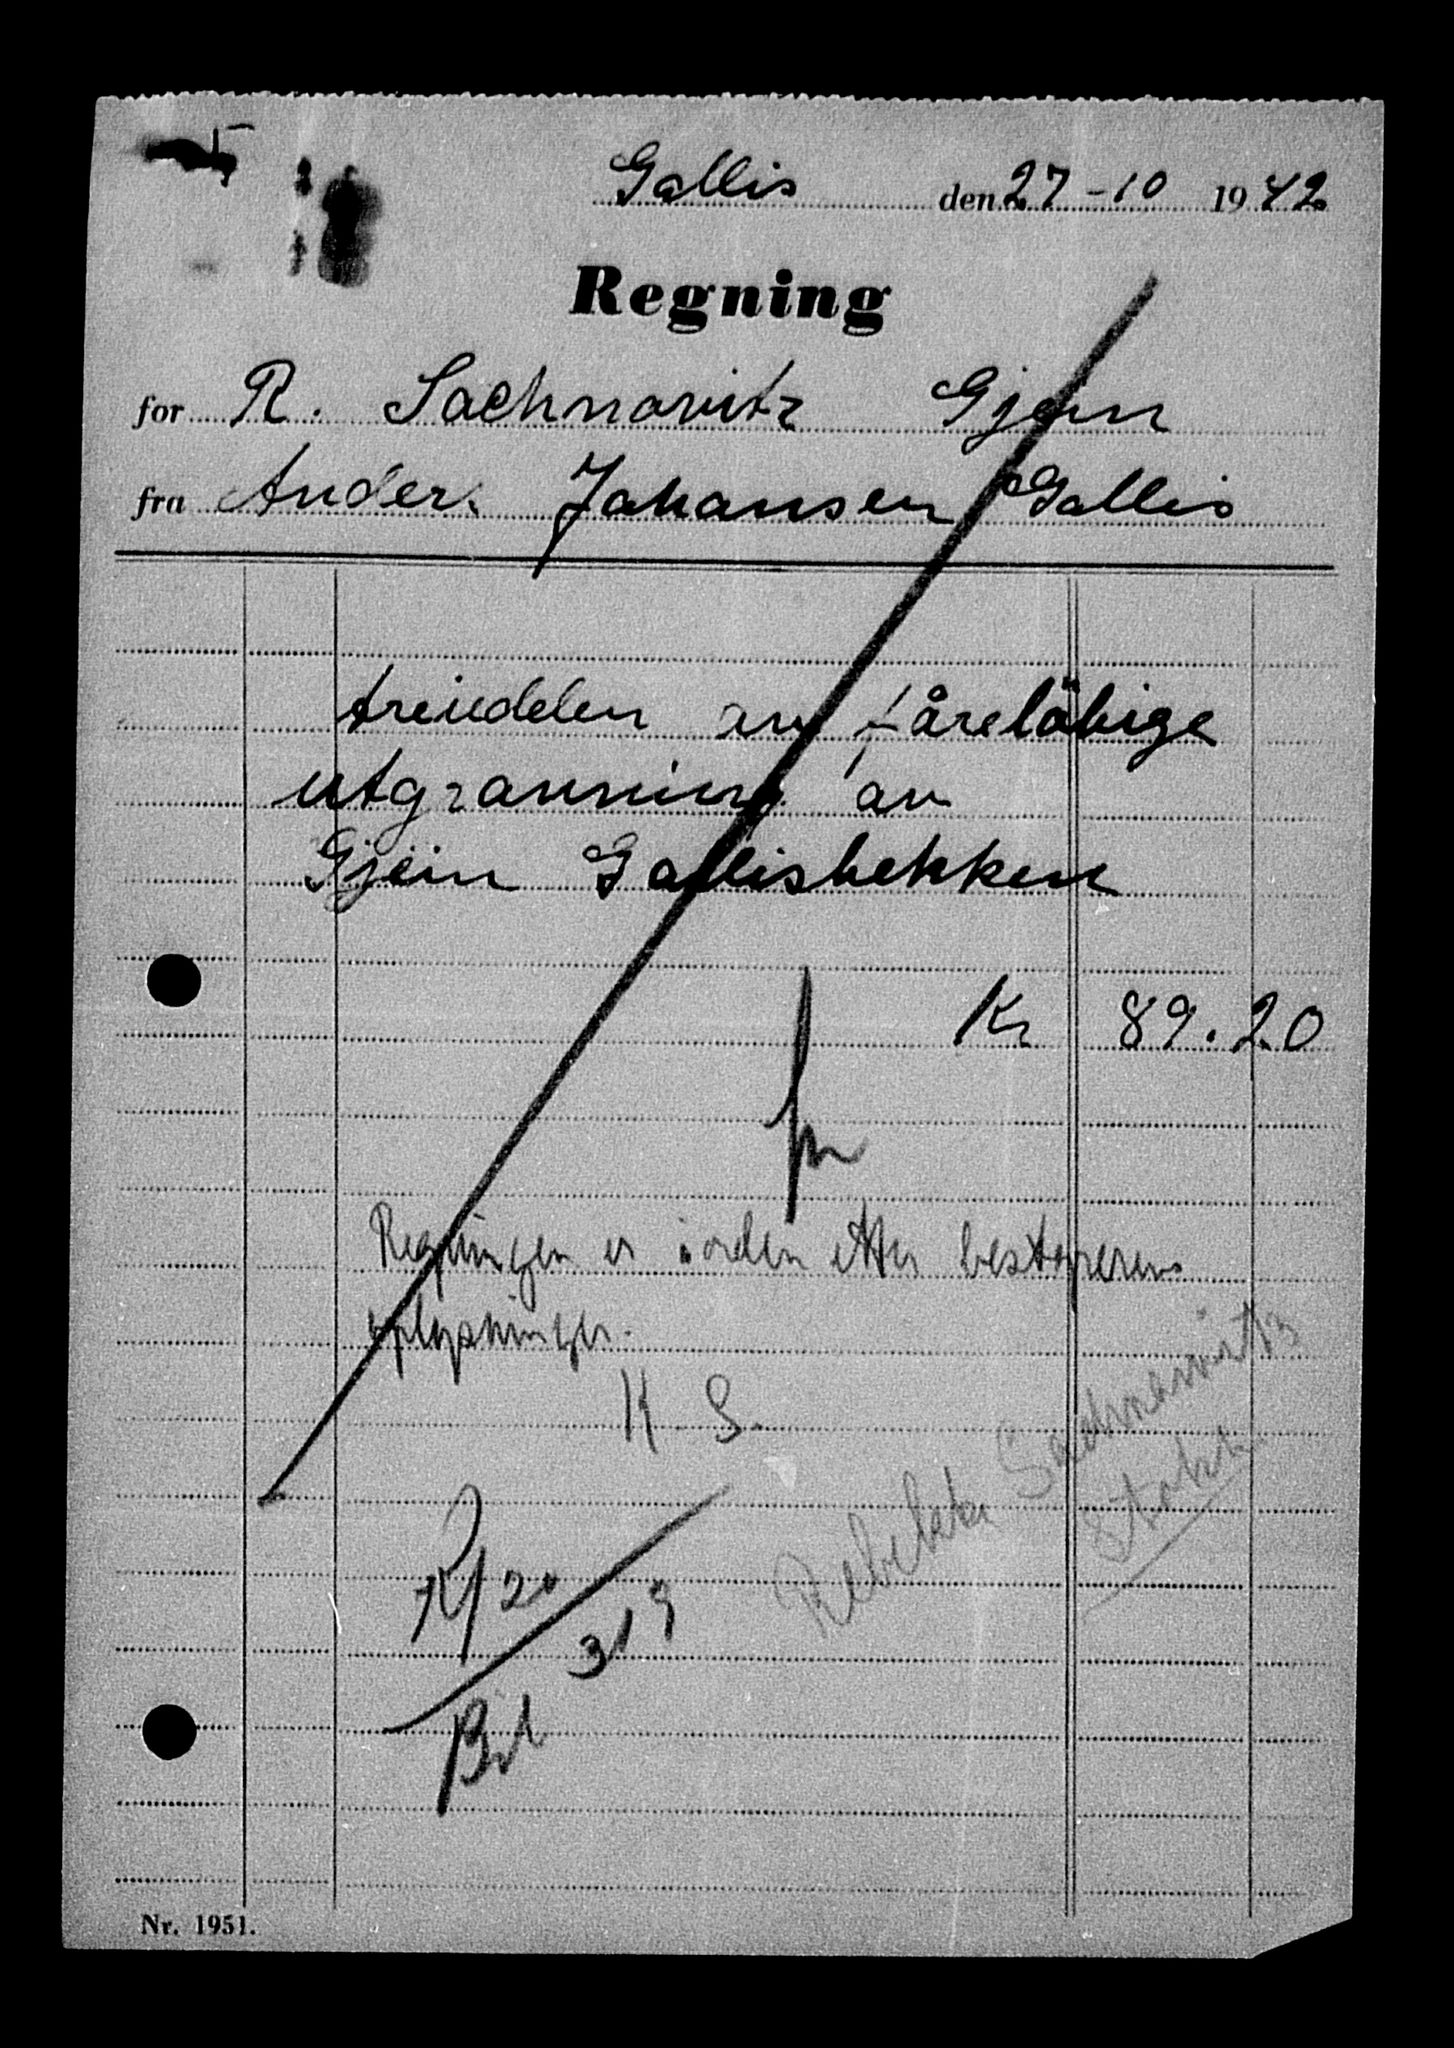 Gallis den 27-10 1942
Regning
for R. Sachnovitz Gjein
fra Anders Johansen Gallis
trediedelen av foreløbige
utgravning av
Gjein Gallisbekken
Kr 89.20
Regningen er i orden etter bestyrerens
oplysninger.
K. S.
Rebekka Sachnowitz
Stokke
R/20
Bil 319
Nr. 1951.